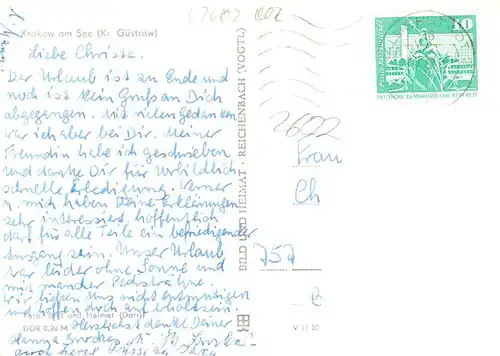 12602 002
Krakow am See (Kr. Güstrow)
Liebe Christa.
Der Urlaub ist zu Ende und
noch ist kein Gruß an Dich
abgegangen. Mit vielen Gedanken
war ich aber bei Dir. Meiner
Freundin habe ich geschrieben
und danke Dir für vorbildlich
schnelle Erledigung. Werner
u. mich haben Deine Erklärungen
sehr interessiert, hoffentlich
darf für alle Teile ein befriedigender
Ausgang sein. Unser Urlaub
war leider ohne Sonne und
mit mancher Pechsträhne.
wir ließen uns nicht entmutigen
und hoffen doch auf
Bild und Heimat
DDR 0,20 M
Herzlichst denkt Deiner
Hanna
BILD UND HEIMAT · REICHENBACH (VOGTL)
V 11 50
10
DEUTSCHE DEMOKRATISCHE REPUBLIK
2602
Frau
Ch
757